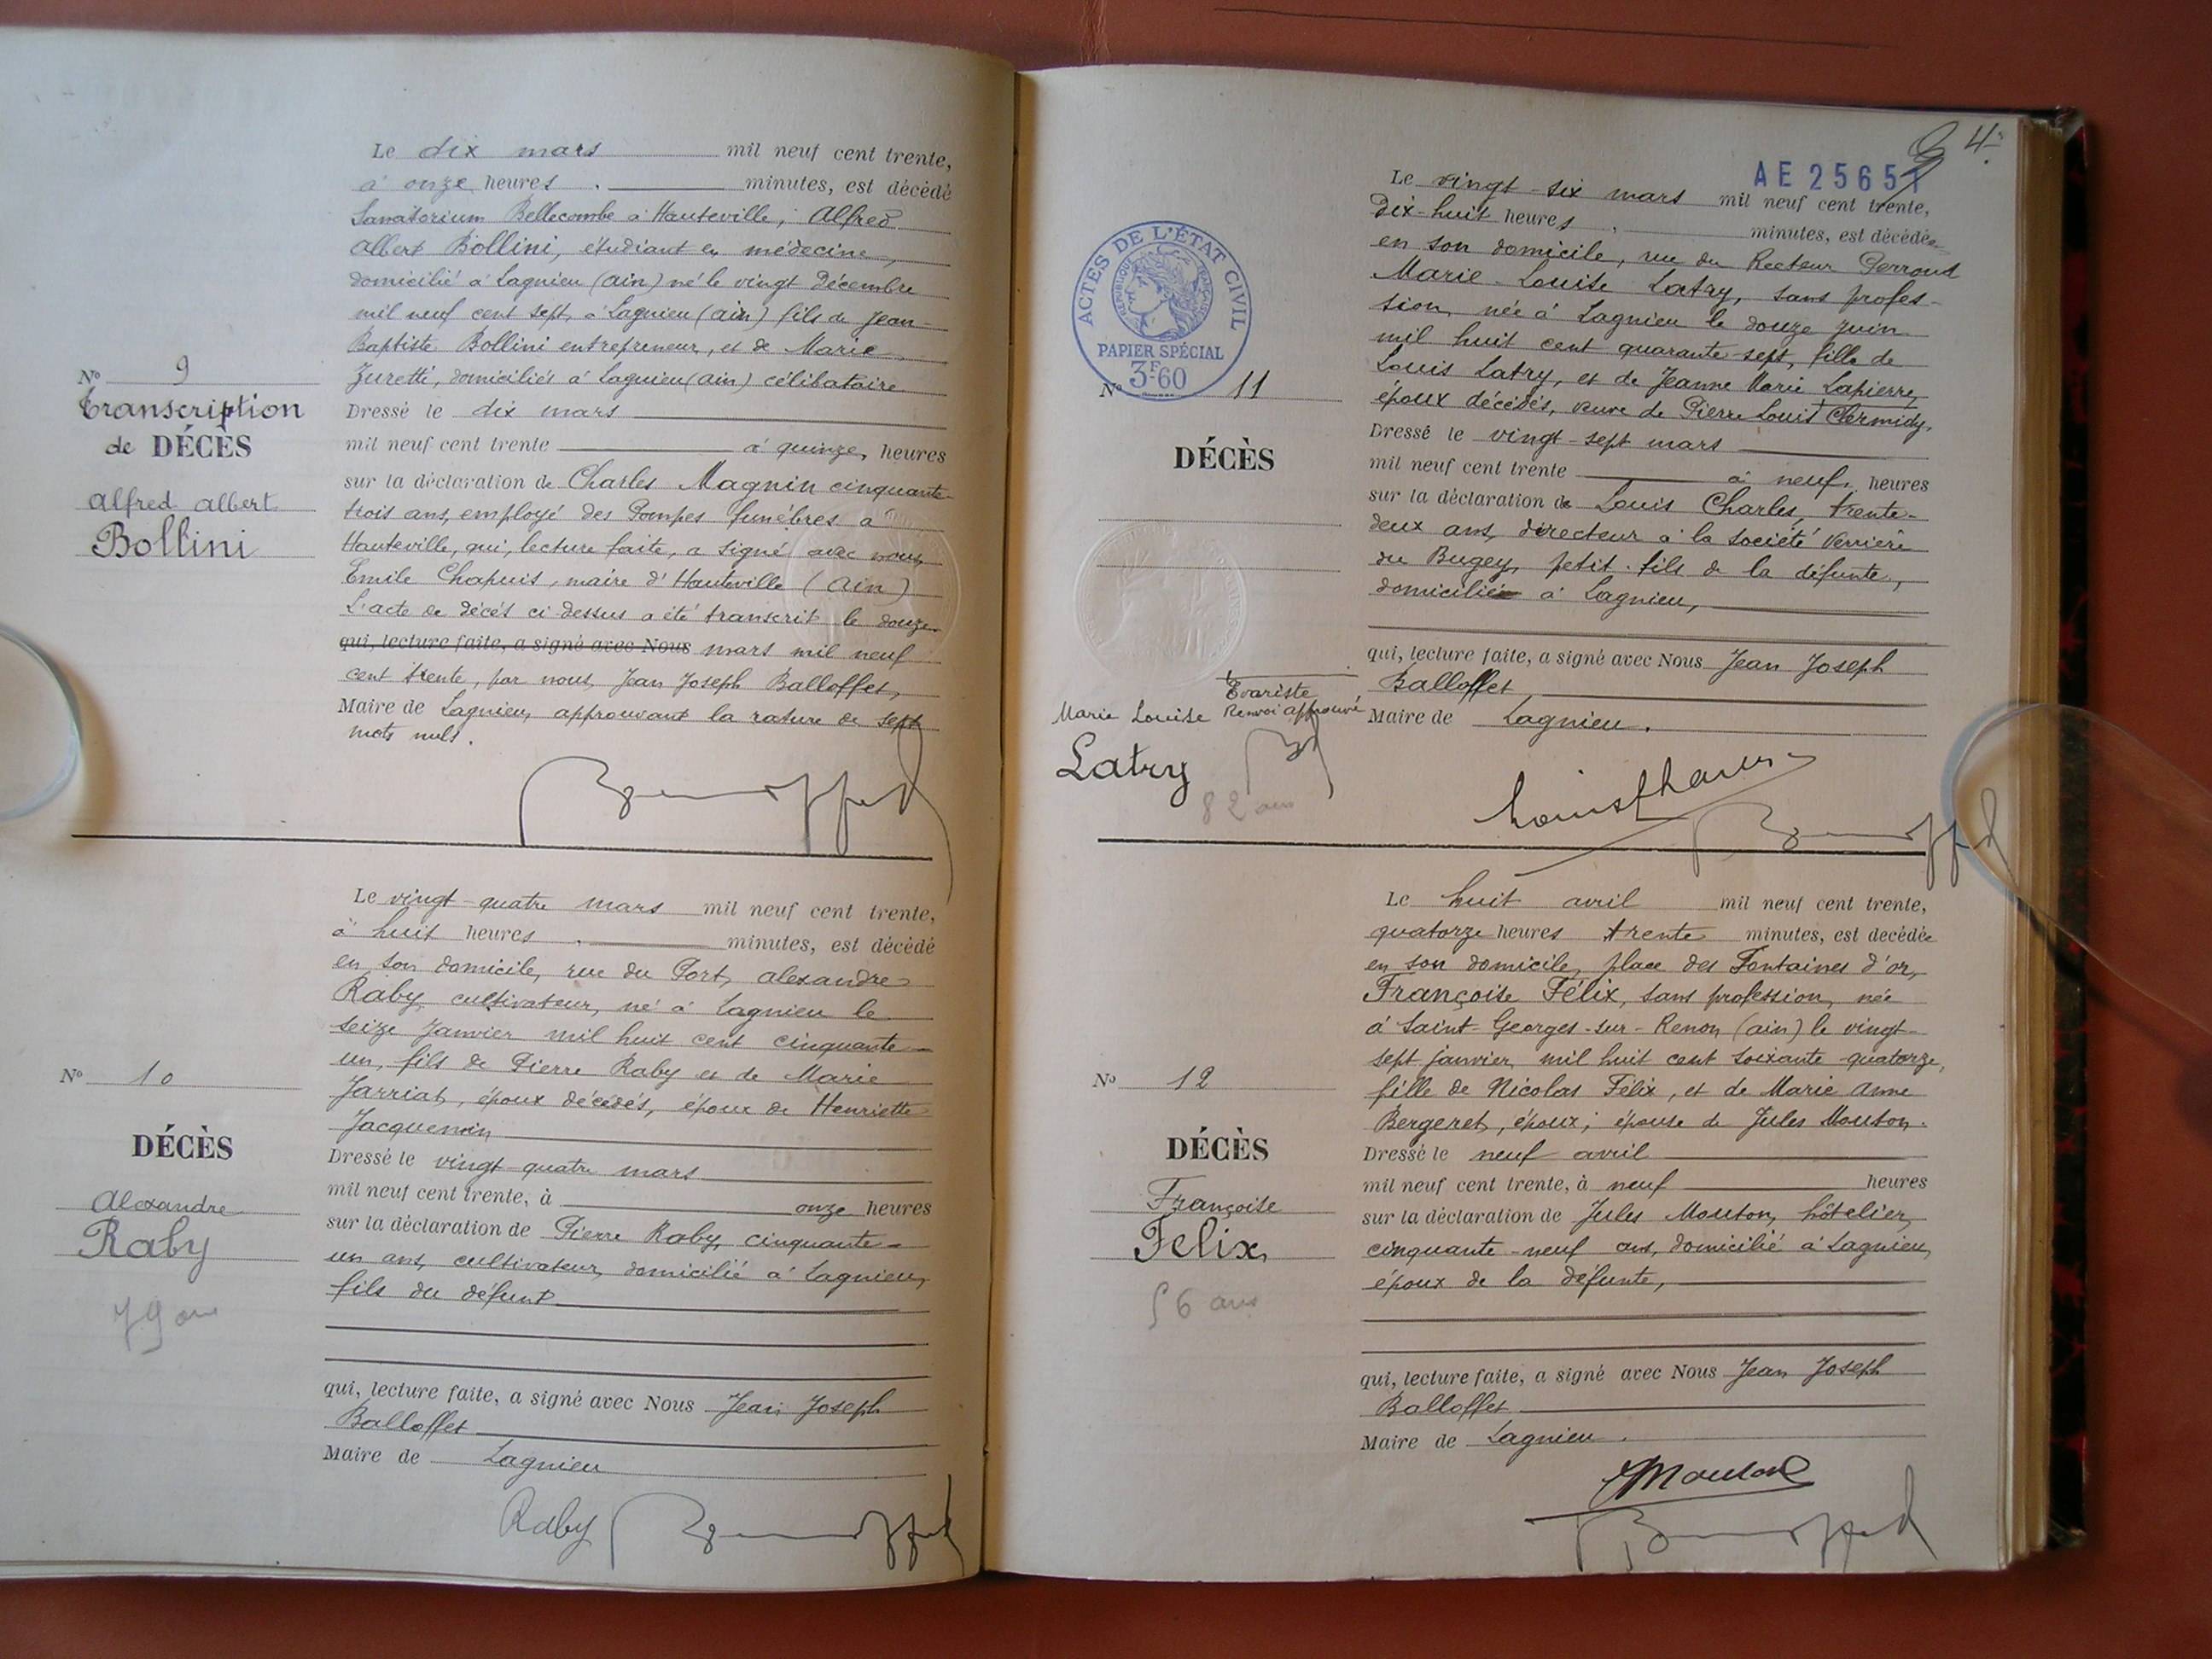 Le dix mars mil neuf cent trente,
à onze heures minutes, est décédé
Sanatorium Bellecombe à Hauteville, Alfred
Albert Bollini, étudiant en médecine,
domicilié à Lagnieu (ain) né le vingt Décembre
mil neuf cent sept, à Lagnieu (ain) fils de Jean-
Baptiste Bollini entrepreneur, et de Marie
Zuretti, domiciliés à Lagnieu (ain) célibataire
Dressé le dix mars
mil neuf cent trente à quinze, heures
sur la déclaration de Charles Magnin cinquante-
trois ans, employé des Pompes funèbres à
Hauteville, qui, lecture faite, a signé avec nous,
Emile Chapuis, maire d'Hauteville (Ain)
L'acte de décès ci-dessus a été transcrit le douze
qui, lecture faite, a signé avec Nous mars mil neuf
cent trente, par nous, Jean Joseph Balloffet,
Maire de Lagnieu, approuvant la rature de sept
mots nuls.
No 9
Transcription
de DÉCÈS
Alfred Albert
Bollini
Le vingt-quatre mars mil neuf cent trente,
à huit heures minutes, est décédé
en son domicile, rue du Port, alexandre
Raby, cultivateur, né à Lagnieu le
seize Janvier mil huit cent cinquante-
un, fils de Pierre Raby et de Marie
Jarriat, époux décédés, époux de Henriette
Jacquemin
Dressé le vingt-quatre mars
mil neuf cent trente, à onze heures
sur la déclaration de Pierre Raby, cinquante-
un ans, cultivateur, domicilié à Lagnieu,
fils du défunt
qui, lecture faite, a signé avec Nous Jean Joseph
Balloffet
Maire de Lagnieu
Raby
No 10
DÉCÈS
Alexandre
Raby
79 ans
4
AE 25651
Le vingt-six mars mil neuf cent trente,
Dix-huit heures minutes, est décédée
en son domicile, rue du Recteur Perroud
Marie-Louise Latry, sans profes-
sion, née à Lagnieu le douze juin
mil huit cent quarante-sept, fille de
Louis Latry, et de Jeanne Marie Lapierre,
époux décédés, veuve de Pierre Louis Chermidy.
Dressé le vingt-sept mars
mil neuf cent trente à neuf, heures
sur la déclaration de Louis Charles, trente-
deux ans, directeur à la Société Verrière
du Bugey, petit-fils de la défunte,
domicilié à Lagnieu,
qui, lecture faite, a signé avec Nous Jean Joseph
Balloffet
Maire de Lagnieu.
Louis Charles
ACTES DE L'ÉTAT CIVIL
RÉPUBLIQUE FRANÇAISE
PAPIER SPÉCIAL
3F.60
No 11
DÉCÈS
Evariste
Renvoi approuvé
Marie Louise
Latry
82 ans
Le huit avril mil neuf cent trente,
quatorze heures trente minutes, est decédée
en son domicile, place des Fontaines d'or,
Françoise Félix, sans profession, née
à Saint-Georges-sur-Renon (ain) le vingt-
sept janvier mil huit cent soixante-quatorze,
fille de Nicolas Félix, et de Marie Anne
Bergeret, époux; épouse de Jules Mouton.
Dressé le neuf avril
mil neuf cent trente, à neuf heures
sur la déclaration de Jules Mouton, hôtelier,
cinquante-neuf ans, domicilié à Lagnieu,
époux de la défunte,
qui, lecture faite, a signé avec Nous Jean Joseph
Balloffet
Maire de Lagnieu.
JMouton
No 12
DÉCÈS
Françoise
Felix
56 ans